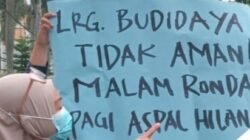 LRG. BUDIDAYA
TIDAK AMAN
MALAM RONDA
PAGI ASPAL HILANG